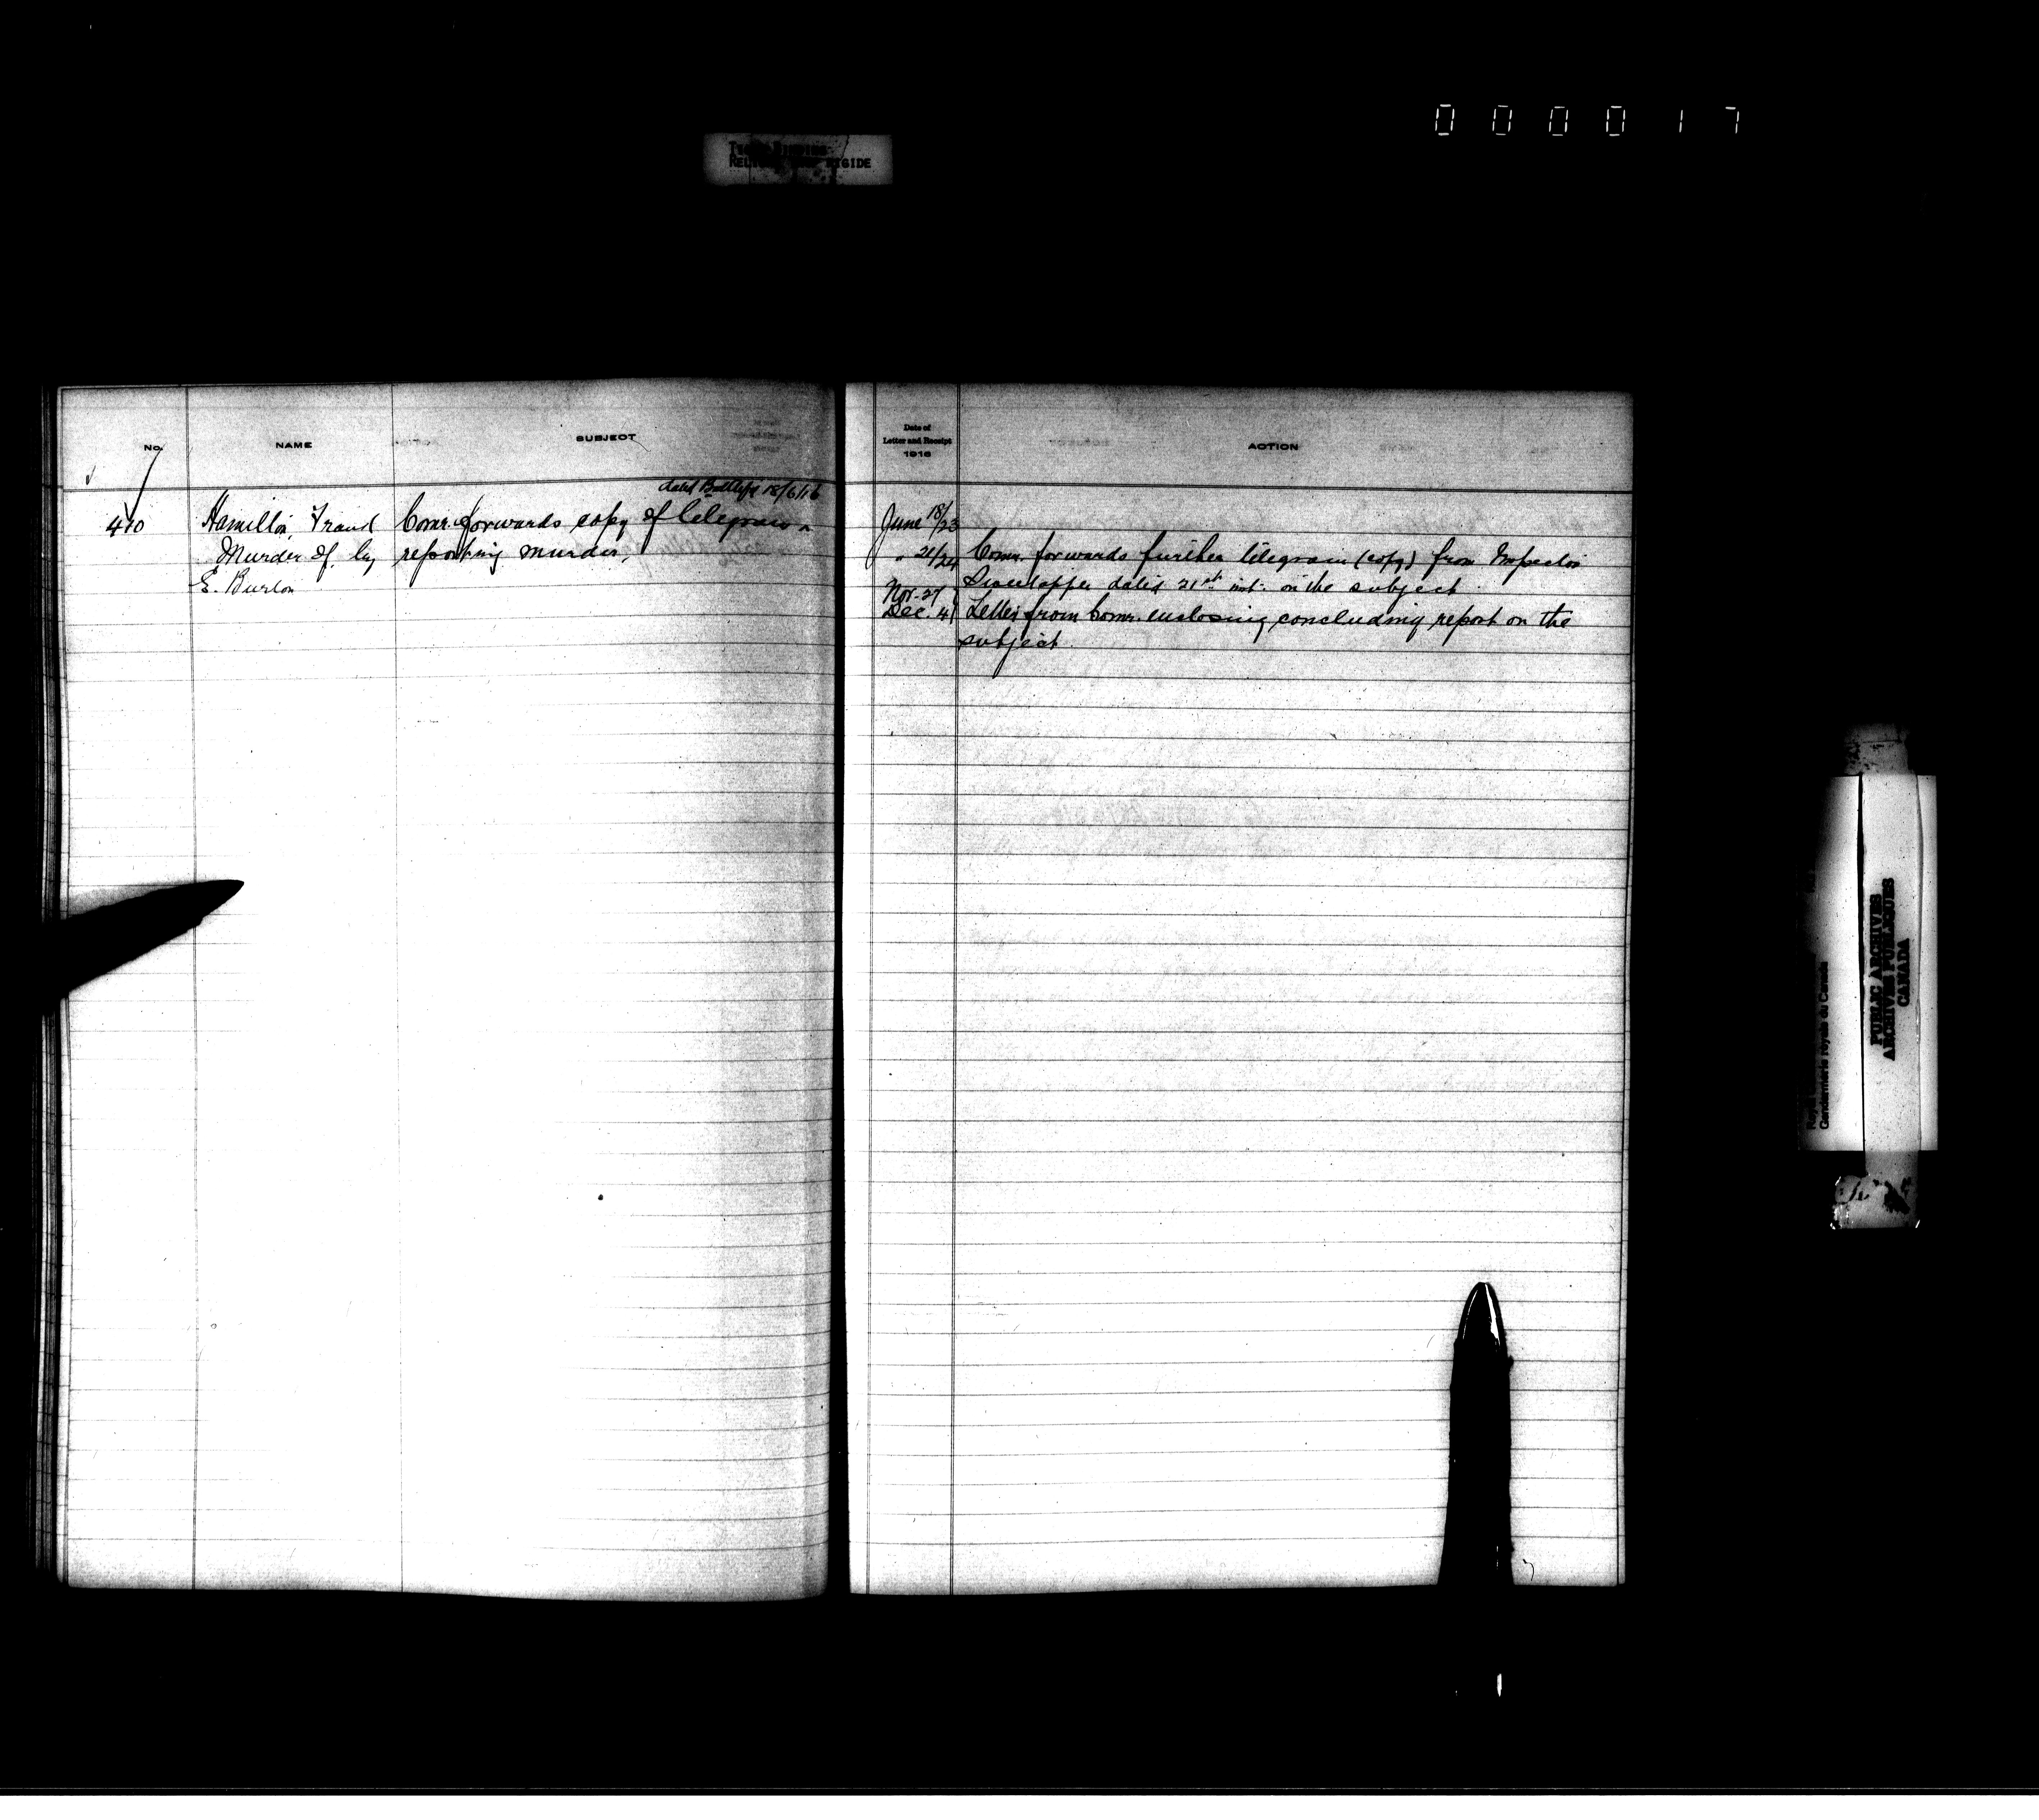 0 0 0 0 1 7
TIGHT BINDING
RELIURE TROP RIGIDE
No.
NAME
SUBJECT
dated 18/6/16
410
Hamilton, Frank
Murder of, by
E. Burton
Comr. forwards copy of telegram
reporting murder.
Date of
Letter and Receipt
1916
ACTION
June 18/23
" 21/24 Comr. forwards further telegram (copy) from Inspector
dated 21st inst. on the subject.
Nov. 27
Dec. 4 Letter from Comr. enclosing concluding report on the
subject.
PUBLIC ARCHIVES
ARCHIVES PUBLIQUES
CANADA
Gendarmerie royale du Canada